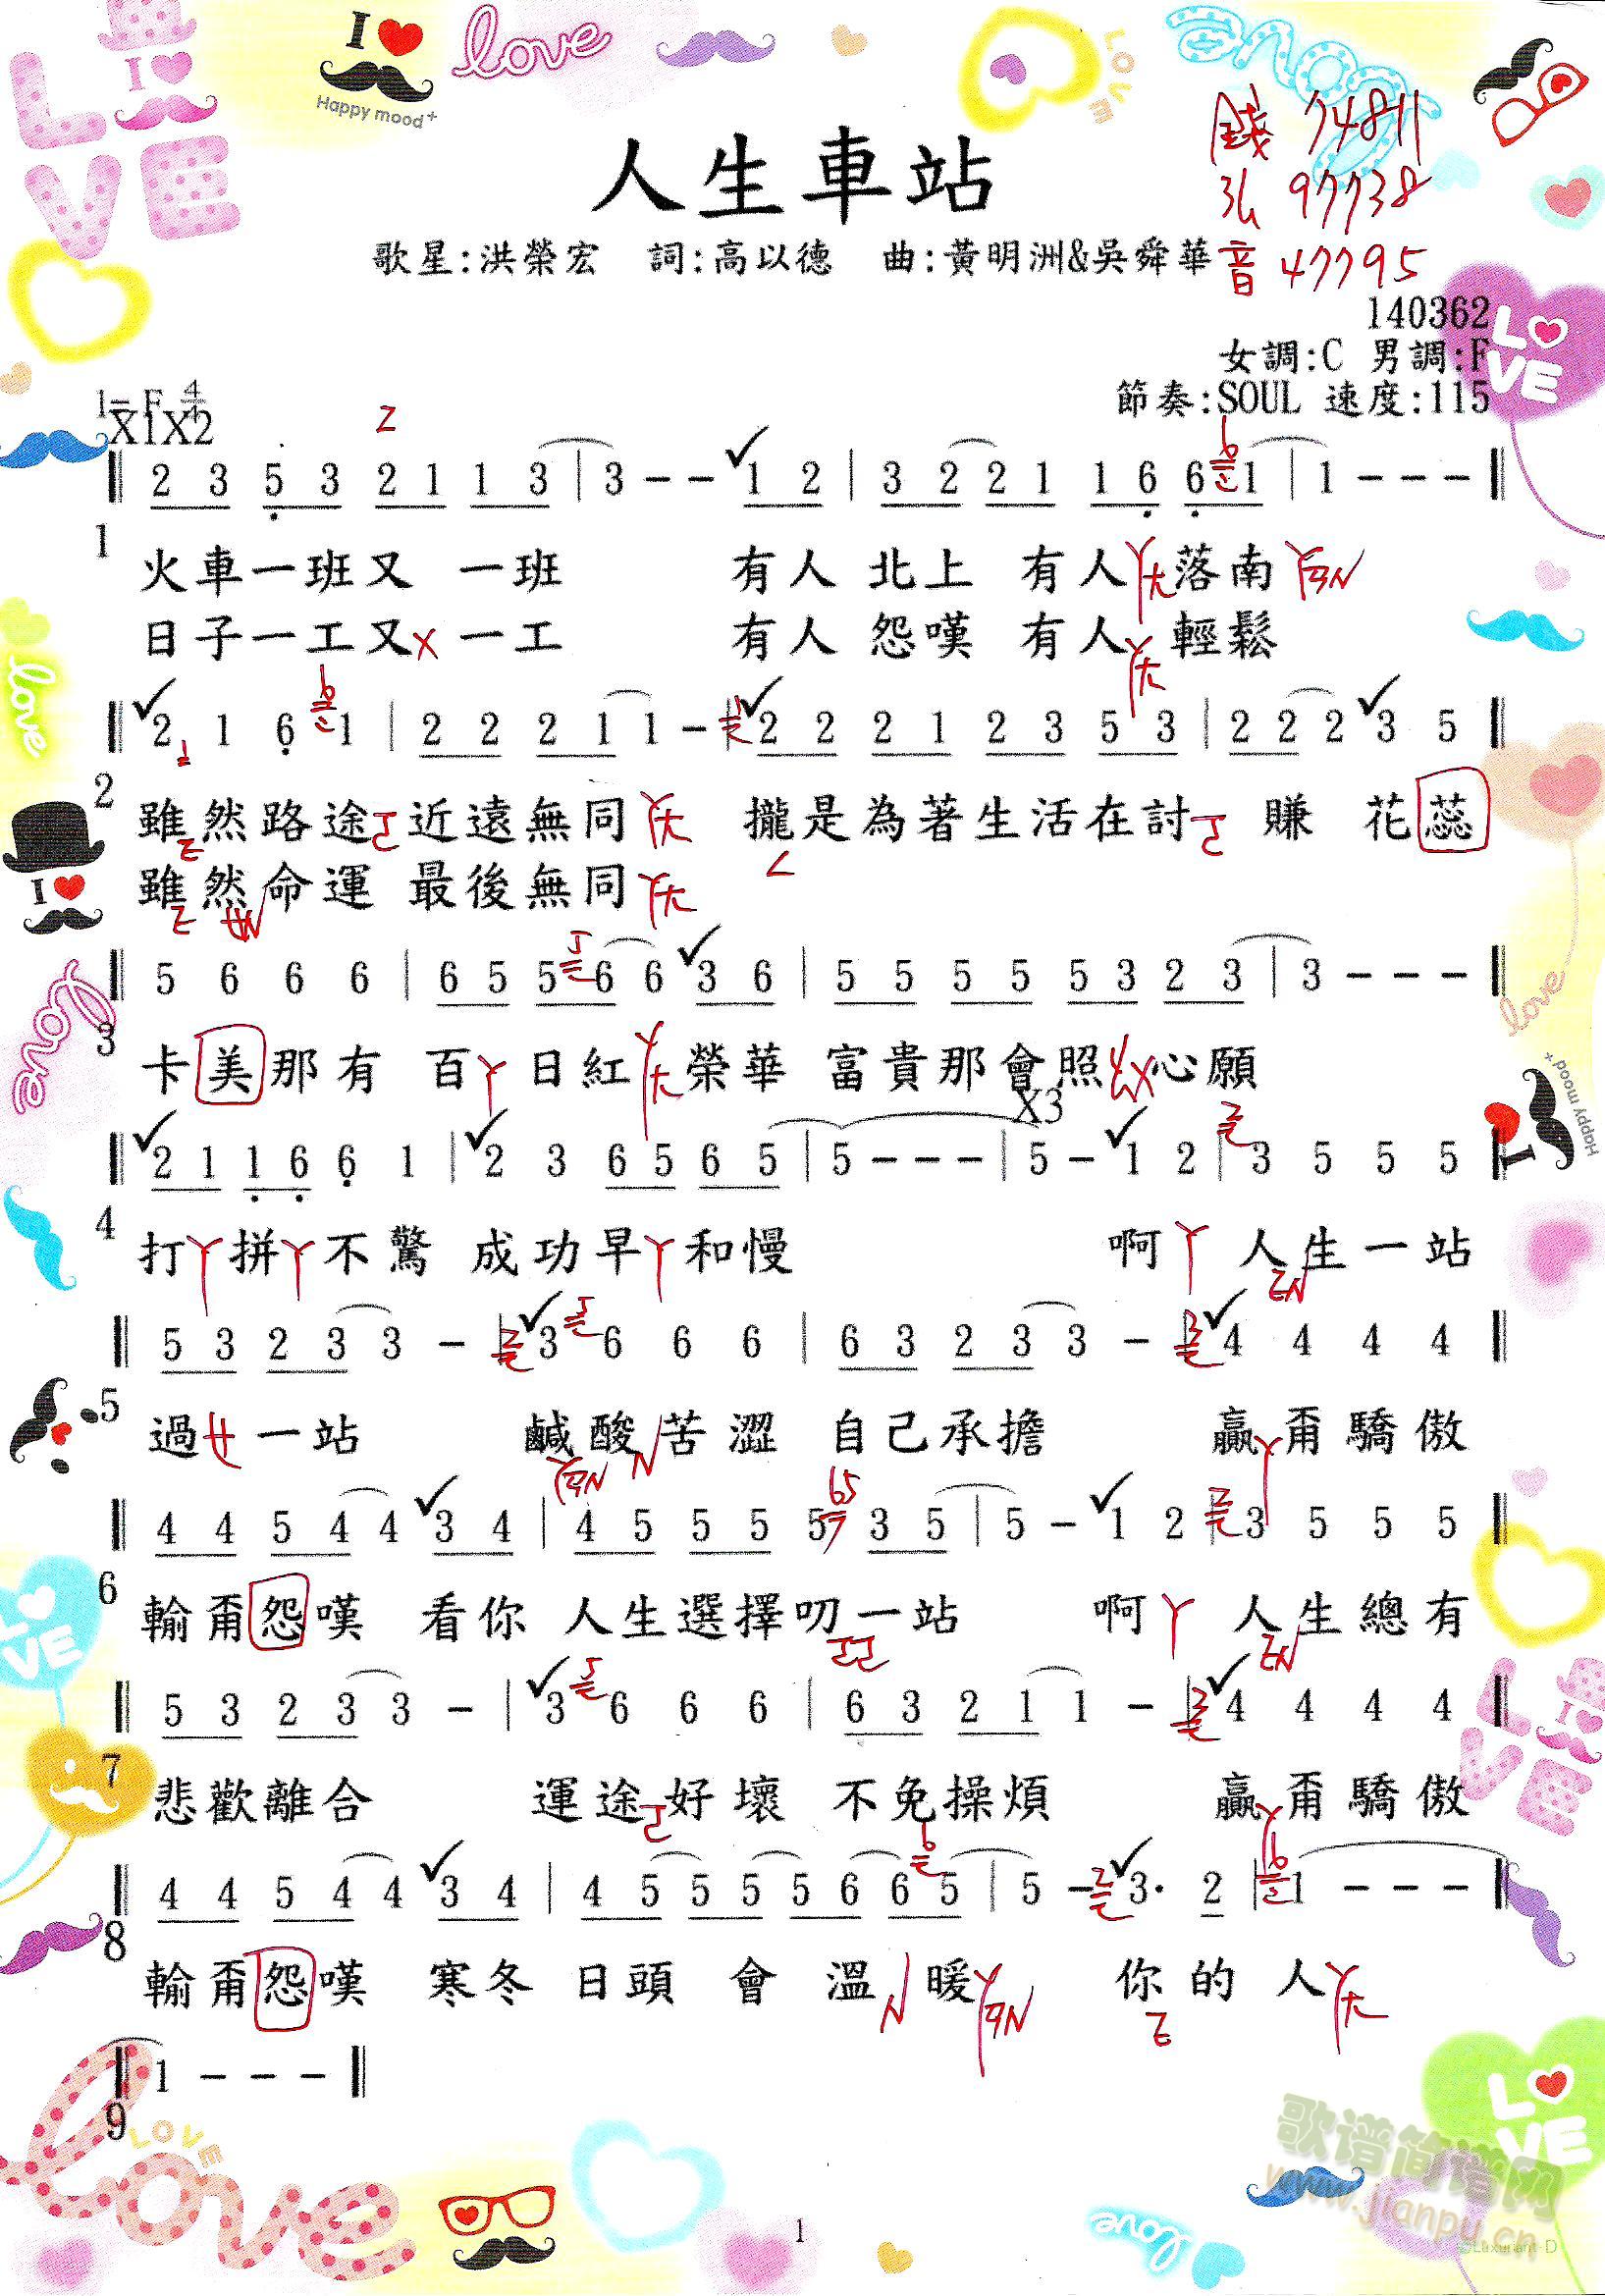 I ♥ Happy mood+
love
LOVE
人生車站
錢 74811
弘 97738
音 47795
歌星:洪榮宏 詞:高以德 曲:黃明洲&吳舜華
140362
女調:C 男調:F
節奏:SOUL 速度:115
1=F 4/4
X1X2
2 3 5 3 2 1 1 3 | 3 - - 1 2 | 3 2 2 1 1 6 6 1 | 1 - - -
1
火車一班又 一班 有人 北上 有人 落南
日子一工又 一工 有人 怨嘆 有人 輕鬆
2 1 6 1 | 2 2 2 1 1 - | 2 2 2 1 2 3 5 3 | 2 2 2 3 5
2
雖然路途 近遠無同 攏是為著生活在討 賺 花蕊
雖然命運 最後無同
5 6 6 6 | 6 5 5 6 6 3 6 | 5 5 5 5 5 3 2 3 | 3 - - -
3
卡美那有 百 日紅 榮華 富貴那會照 心願
X3
2 1 1 6 6 1 | 2 3 6 5 6 5 | 5 - - - | 5 - 1 2 | 3 5 5 5
4
打 拼 不驚 成功早 和慢 啊 人生一站
5 3 2 3 3 - | 3 6 6 6 | 6 3 2 3 3 - | 4 4 4 4
5
過 一站 鹹酸 苦澀 自己承擔 贏 甭驕傲
4 4 5 4 4 3 4 | 4 5 5 5 5 3 5 | 5 - 1 2 | 3 5 5 5
6
輸甭怨嘆 看你 人生選擇叨一站 啊 人生總有
5 3 2 3 3 - | 3 6 6 6 | 6 3 2 1 1 - | 4 4 4 4
7
悲歡離合 運途 好壞 不免操煩 贏 甭驕傲
4 4 5 4 4 3 4 | 4 5 5 5 5 6 6 5 | 5 - 3· 2 | 1 - - -
8
輸甭怨嘆 寒冬 日頭 會 溫 暖 你的 人
1 - - -
9
1
歌谱简谱网
www.jianpu.cn